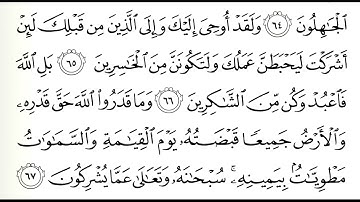 الْجَاهِلُونَ ٦٤ وَلَقَدْ أُوحِىَ إِلَيْكَ وَإِلَى الَّذِينَ مِن قَبْلِكَ لَئِنْ
أَشْرَكْتَ لَيَحْبَطَنَّ عَمَلُكَ وَلَتَكُونَنَّ مِنَ الْخَاسِرِينَ ٦٥ بَلِ اللَّهَ
فَاعْبُدْ وَكُن مِّنَ الشَّاكِرِينَ ٦٦ وَمَا قَدَرُوا اللَّهَ حَقَّ قَدْرِهِ
وَالْأَرْضُ جَمِيعًا قَبْضَتُهُ يَوْمَ الْقِيَامَةِ وَالسَّمَاوَاتُ
مَطْوِيَّاتٌ بِيَمِينِهِ ۚ سُبْحَانَهُ وَتَعَالَى عَمَّا يُشْرِكُونَ ٦٧